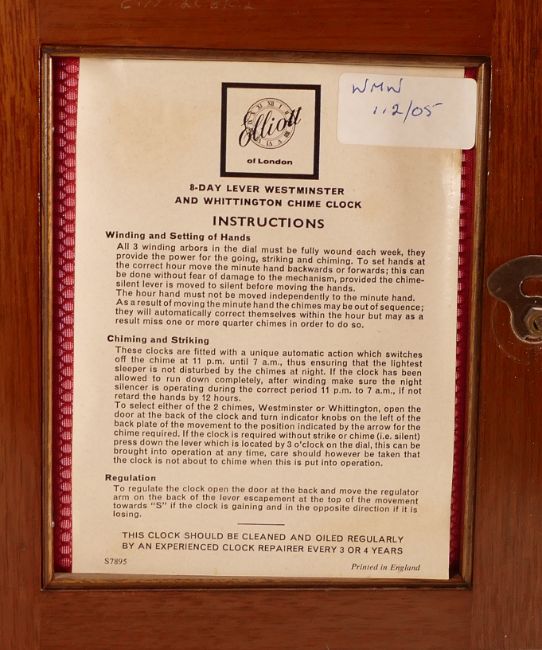 WMW
Elliott
of London
8-DAY LEVER WESTMINSTER
AND WHITTINGTON CHIME CLOCK
INSTRUCTIONS
Winding and Setting of Hands
All 3 winding arbors in the dial must be fully wound each week, they
provide the power for the going, striking and chiming. To set hands at
the correct hour move the minute hand backwards or forwards; this can
be done without fear of damage to the mechanism, provided the chime-
silent lever is moved to silent before moving the hands.
The hour hand must not be moved independently to the minute hand.
As a result of moving the minute hand the chimes may be out of sequence;
they will automatically correct themselves within the hour but may as a
result miss one or more quarter chimes in order to do so.
Chiming and Striking
These clocks are fitted with a unique automatic action which switches
off the chime at 11 p.m. until 7 a.m., thus ensuring that the lightest
sleeper is not disturbed by the chimes at night. If the clock has been
allowed to run down completely, after winding make sure the night
silencer is operating during the correct period 11 p.m. to 7 a.m., if not
retard the hands by 12 hours.
To select either of the 2 chimes, Westminster or Whittington, open the
door at the back of the clock and turn indicator knobs on the left of the
back plate of the movement to the position indicated by the arrow for the
chime required. If the clock is required without strike or chime (i.e. silent)
press down the lever which is located by 3 o'clock on the dial, this can be
brought into operation at any time, care should however be taken that
the clock is not about to chime when this is put into operation.
Regulation
To regulate the clock open the door at the back and move the regulator
arm on the back of the lever escapement at the top of the movement
towards "S" if the clock is gaining and in the opposite direction if it is
losing.
THIS CLOCK SHOULD BE CLEANED AND OILED REGULARLY
BY AN EXPERIENCED CLOCK REPAIRER EVERY 3 OR 4 YEARS
S7895
Printed in England